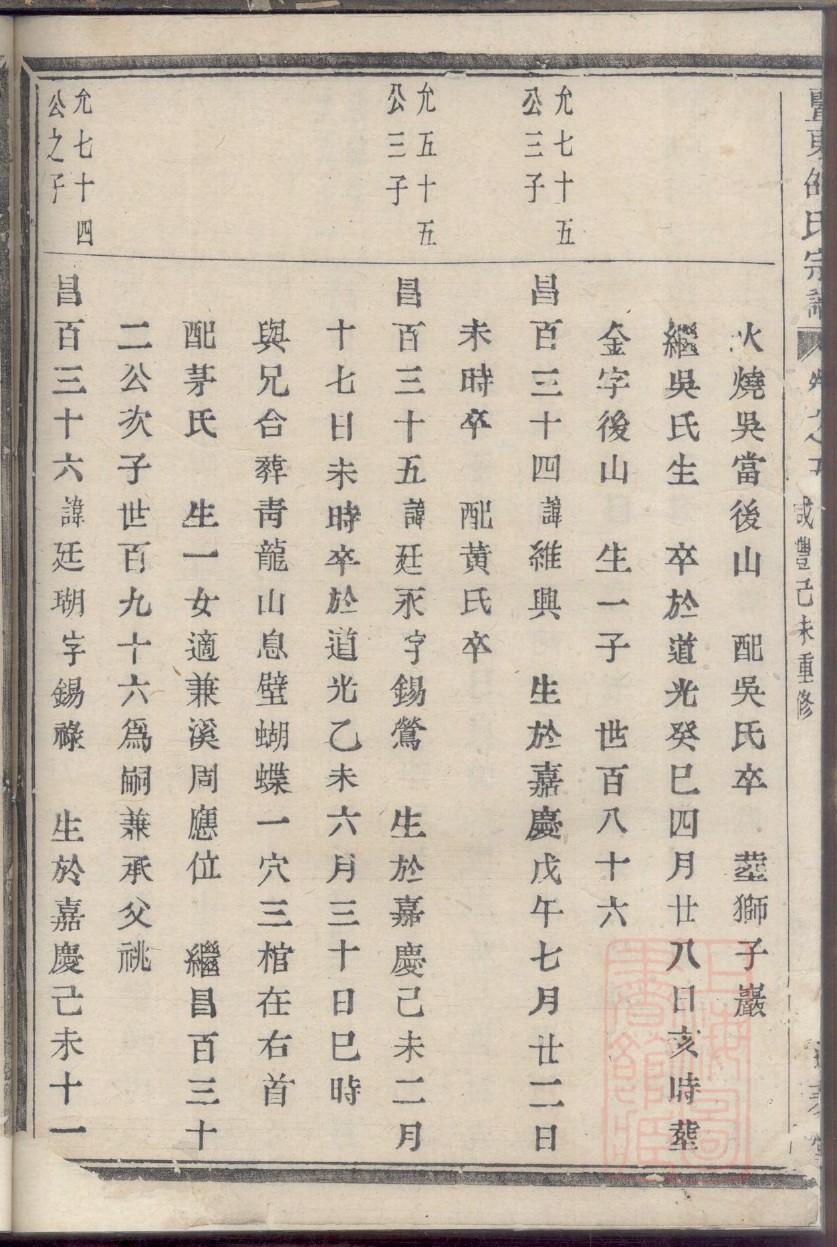 氏宗譜 咸豐己未重修
火燒吳當後山 配吳氏卒 塟獅子巖
繼吳氏生 卒於道光癸巳四月廿八日亥時塟
金字後山 生一子 世百八十六
允七十五
公三子
昌百三十四諱維興 生於嘉慶戊午七月廿二日
未時卒 配黄氏卒
允五十五
公三子
昌百三十五諱廷永字錫鶯 生於嘉慶己未二月
十七日未時卒於道光乙未六月三十日巳時
與兄合葬青龍山息壁蝴蝶一穴三棺在右首
配茅氏 生一女適兼溪周應位 繼昌百三十
二公次子世百九十六爲嗣兼承父祧
允七十四
公之子
昌百三十六諱廷瑚字錫祿 生於嘉慶己未十一